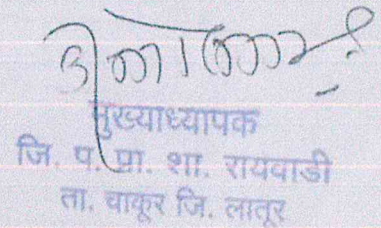 मुख्याध्यापक
जि. प. प्रा. शा. रायवाडी
ता. चाकूर जि. लातूर